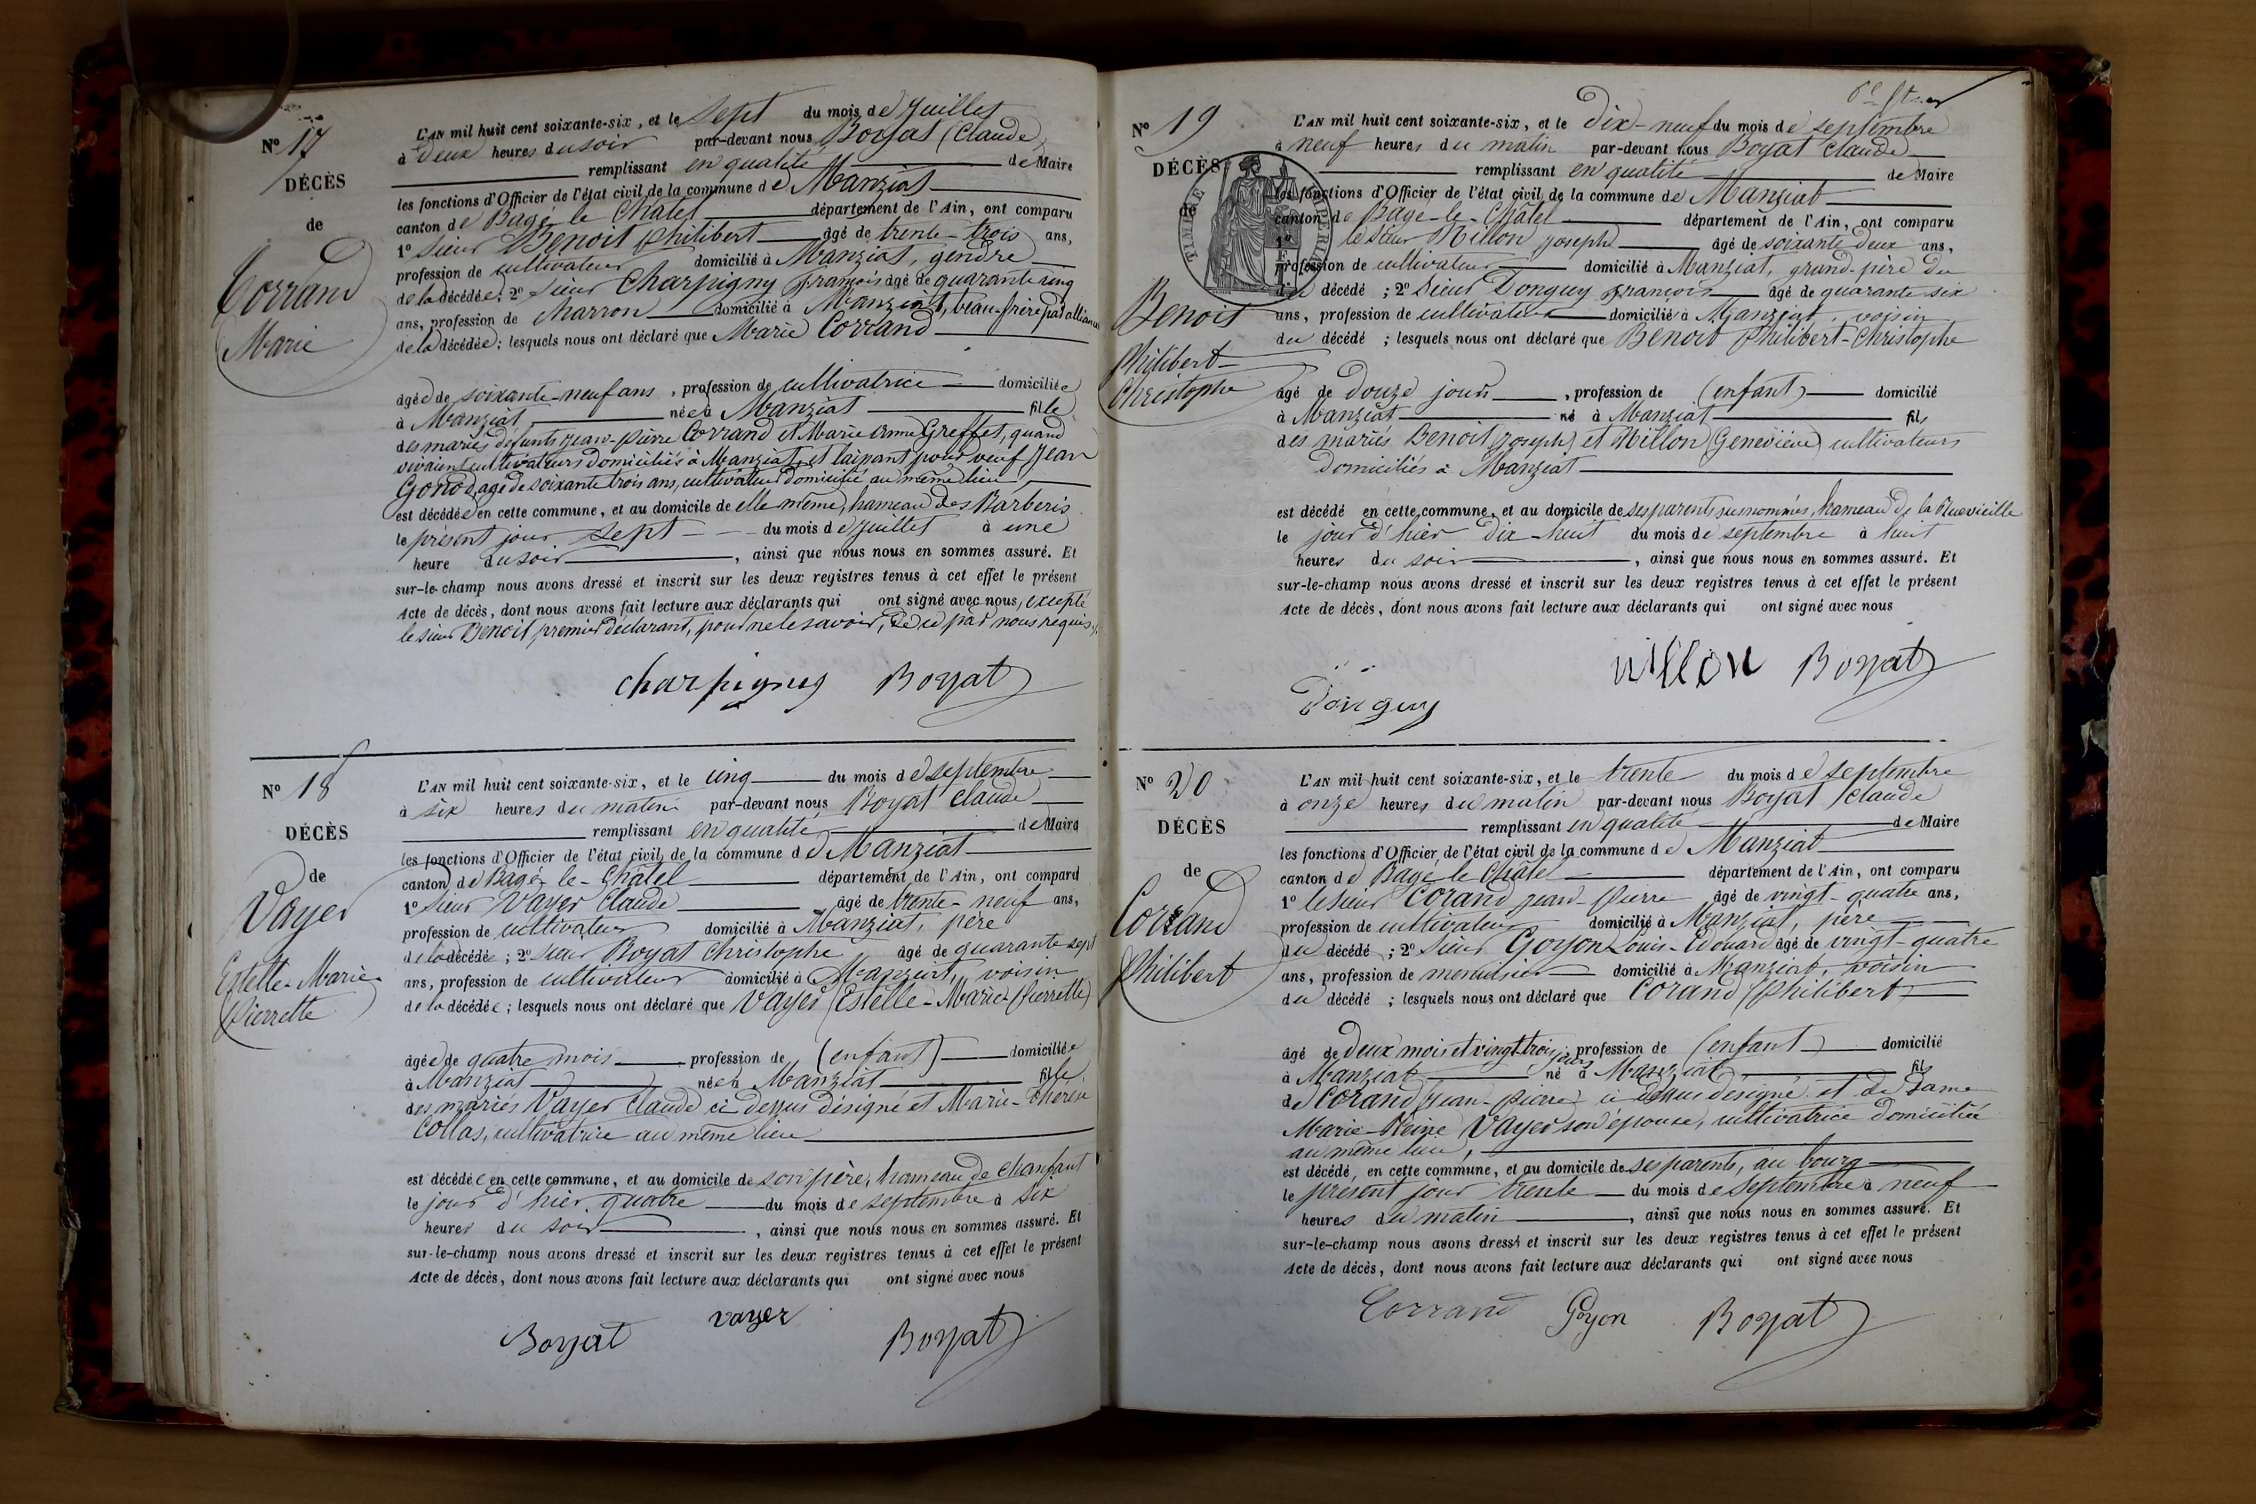 Nº 17
DÉCÈS
de
Corrand
Marie
L'AN mil huit cent soixante-six, et le sept du mois de Juillet
à deux heures du soir par-devant nous Boyat (Claude)
remplissant en qualité de Maire
les fonctions d'Officier de l'état civil de la commune de Manziat
canton de Bagé-le-Châtel département de l'Ain, ont comparu
1º sieur Benoit Philibert âgé de trente-trois ans,
profession de cultivateur domicilié à Manziat, gendre
de la décédée; 2º sieur Charpigny François âgé de quarante cinq
ans, profession de charron domicilié à Manziat, beau-frère par alliance
de la décédée; lesquels nous ont déclaré que Marie Corrand
âgée de soixante-neuf ans, profession de cultivatrice domiciliée
à Manziat née à Manziat fille
des mariés défunts Jean-Pierre Corrand et Marie Anne Greffet, quand
vivaient cultivateurs domiciliés à Manziat et laissant pour veuf Jean
Gonod, âgé de soixante trois ans, cultivateur domicilié au même lieu
est décédée en cette commune, et au domicile de elle même, hameau des Barberis
le présent jour sept du mois de Juillet à une
heure du soir, ainsi que nous nous en sommes assuré. Et
sur-le-champ nous avons dressé et inscrit sur les deux registres tenus à cet effet le présent
Acte de décès, dont nous avons fait lecture aux déclarants qui ont signé avec nous, excepté
le sieur Benoit premier déclarant, pour ne le savoir, de ce par nous requis
Charpigny Boyat
Nº 18
DÉCÈS
de
Vayer
Estelle-Marie-
Pierrette
L'AN mil huit cent soixante-six, et le cinq du mois de septembre
à six heures du matin par-devant nous Boyat Claude
remplissant en qualité de Maire
les fonctions d'Officier de l'état civil de la commune de Manziat
canton de Bagé-le-Châtel département de l'Ain, ont comparu
1º sieur Vayer Claude âgé de trente-neuf ans,
profession de cultivateur domicilié à Manziat, père
de la décédée; 2º sieur Boyat Christophe âgé de quarante sept
ans, profession de cultivateur domicilié à Manziat, voisin
de la décédée; lesquels nous ont déclaré que Vayer (Estelle-Marie-Pierrette)
âgée de quatre mois profession de (enfant) domiciliée
à Manziat née à Manziat fille
des mariés Vayer Claude ci dessus désigné et Marie-Thérèse
Collas, cultivatrice au même lieu
est décédée en cette commune, et au domicile de son père, hameau de Chanfant
le jour d'hier quatre du mois de septembre à six
heures du soir, ainsi que nous nous en sommes assuré. Et
sur-le-champ nous avons dressé et inscrit sur les deux registres tenus à cet effet le présent
Acte de décès, dont nous avons fait lecture aux déclarants qui ont signé avec nous
Boyat vayer Boyat
Nº 19
DÉCÈS
de
TIMBRE IMPERIAL
Benoit
Philibert-
Christophe
L'AN mil huit cent soixante-six, et le dix-neuf du mois de septembre
à neuf heures du matin par-devant nous Boyat Claude
remplissant en qualité de Maire
les fonctions d'Officier de l'état civil de la commune de Manziat
canton de Bagé-le-Châtel département de l'Ain, ont comparu
1º le sieur Nillon Joseph âgé de soixante deux ans,
profession de cultivateur domicilié à Manziat, grand-père du
du décédé; 2º sieur Donguy François âgé de quarante six
ans, profession de cultivateur domicilié à Manziat, voisin
du décédé; lesquels nous ont déclaré que Benoit Philibert-Christophe
âgé de douze jours, profession de (enfant) domicilié
à Manziat né à Manziat fils
des mariés Benoit (Joseph) et Nillon (Geneviève) cultivateurs
domiciliés à Manziat
est décédé en cette commune, et au domicile de ses parents susnommés, hameau de la Ruevieille
le jour d'hier dix-huit du mois de septembre à huit
heures du soir, ainsi que nous nous en sommes assuré. Et
sur-le-champ nous avons dressé et inscrit sur les deux registres tenus à cet effet le présent
Acte de décès, dont nous avons fait lecture aux déclarants qui ont signé avec nous
nillon Boyat
Donguy
Nº 20
DÉCÈS
de
Corrand
Philibert
L'AN mil huit cent soixante-six, et le trente du mois de septembre
à onze heures du matin par-devant nous Boyat Claude
remplissant en qualité de Maire
les fonctions d'Officier de l'état civil de la commune de Manziat
canton de Bagé-le-Châtel département de l'Ain, ont comparu
1º le sieur Corand Jean-Pierre âgé de vingt-quatre ans,
profession de cultivateur domicilié à Manziat, père
du décédé; 2º sieur Goyon Louis-Edouard âgé de vingt-quatre
ans, profession de menuisier domicilié à Manziat, voisin
du décédé; lesquels nous ont déclaré que Corand Philibert
âgé de deux mois et vingt trois jours, profession de (enfant) domicilié
à Manziat né à Manziat fils
de Corand Jean-Pierre ci dessus désigné et de Dame
Marie-Reine Vayer son épouse, cultivatrice domiciliée
au même lieu,
est décédé en cette commune, et au domicile de ses parents, au bourg
le présent jour trente du mois de septembre à neuf
heures du matin, ainsi que nous nous en sommes assuré. Et
sur-le-champ nous avons dressé et inscrit sur les deux registres tenus à cet effet le présent
Acte de décès, dont nous avons fait lecture aux déclarants qui ont signé avec nous
Corrand Goyon Boyat